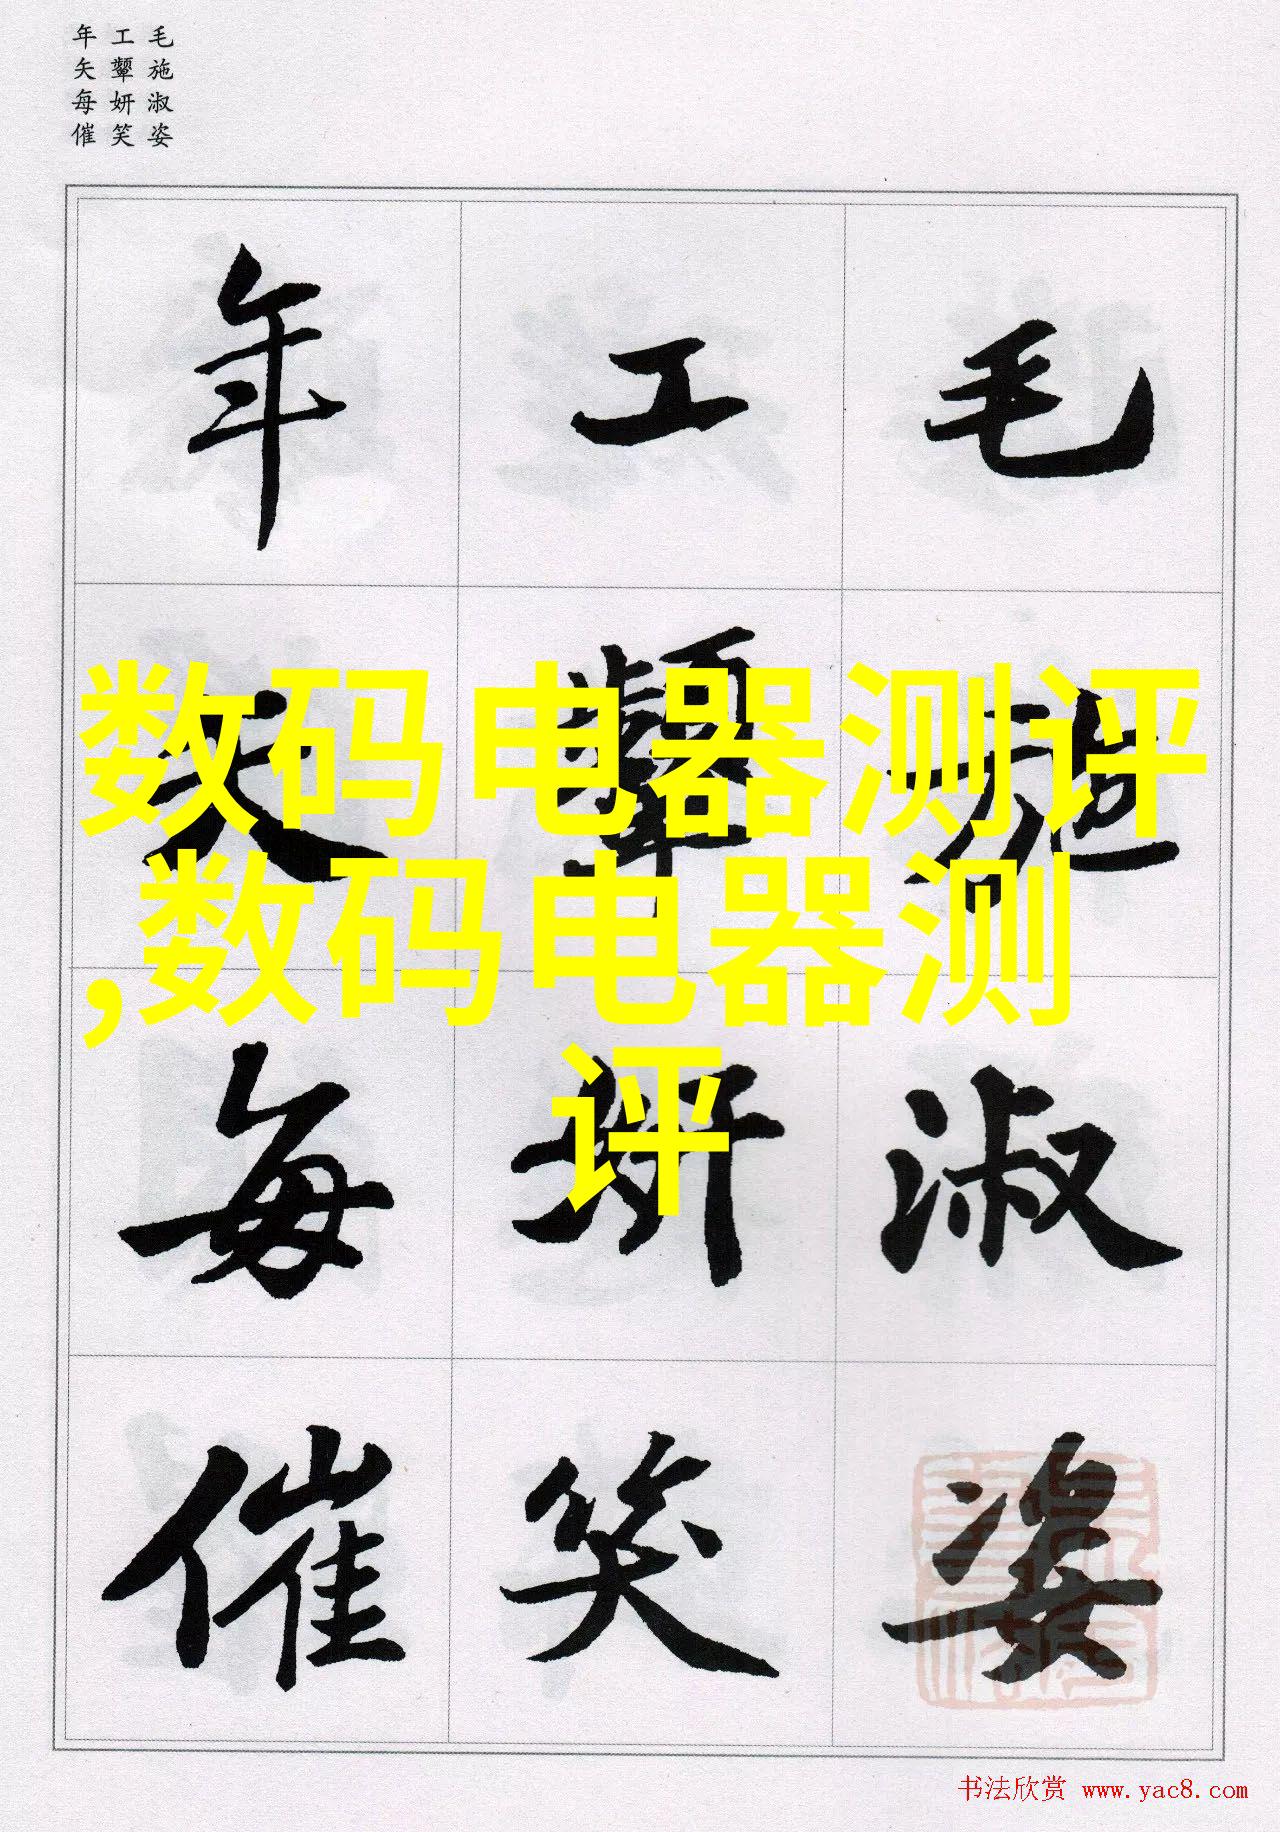 年工毛
矢顰施
每妍淑
催笑姿
年工毛
矢顰施
每妍淑
催笑姿
数码电器测评
,数码电器测
评
书法欣赏 www.yac8.com